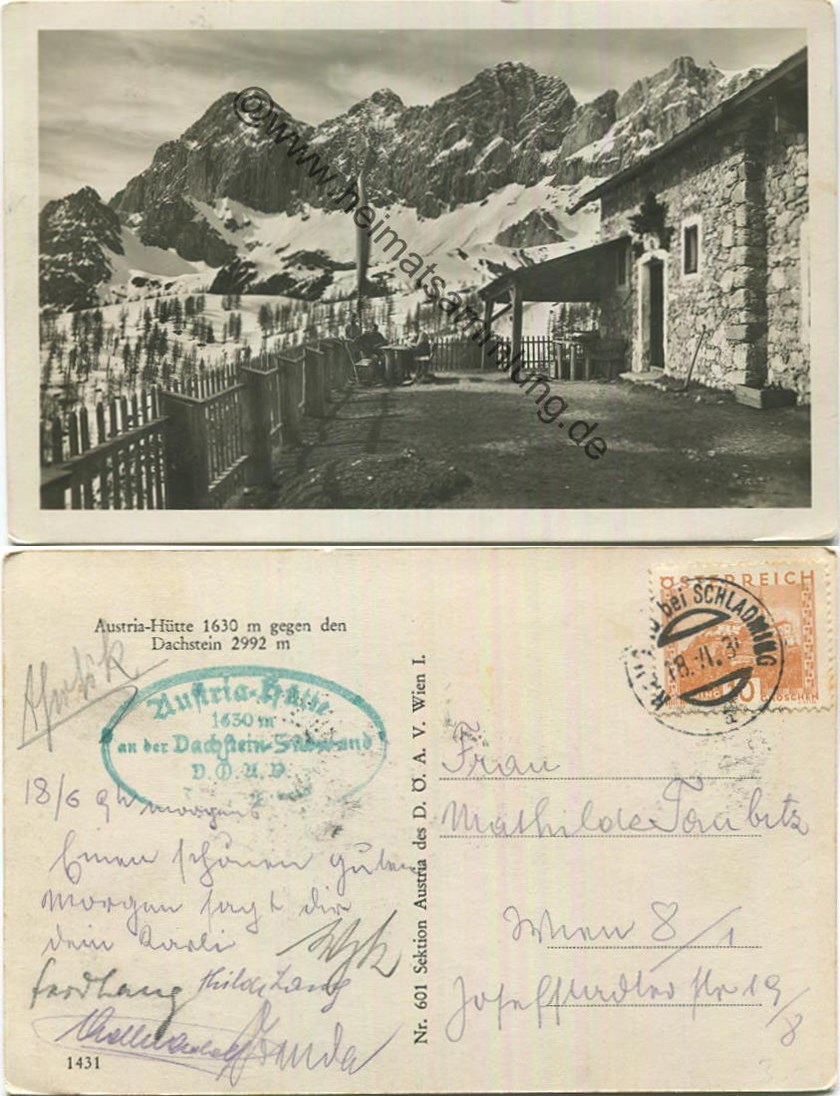 © www.heimatsammlung.de
Austria-Hütte 1630 m gegen den
Dachstein 2992 m
Austria-Hütte
1630 m
an der Dachstein-Südwand
D.Ö.A.V.
ÖSTERREICH
bei SCHLADMING
18.VI.3
10 GROSCHEN
18/6 9h morgens
Einen schönen guten
Morgen sagt dir
dein Karli
Ferd Lang Hilde Lang
1431
Nr. 601 Sektion Austria des D. Ö. A. V. Wien I.
Frau
Mathilde Taubitz
Wien 8/1
Josefstädter Str 19/8